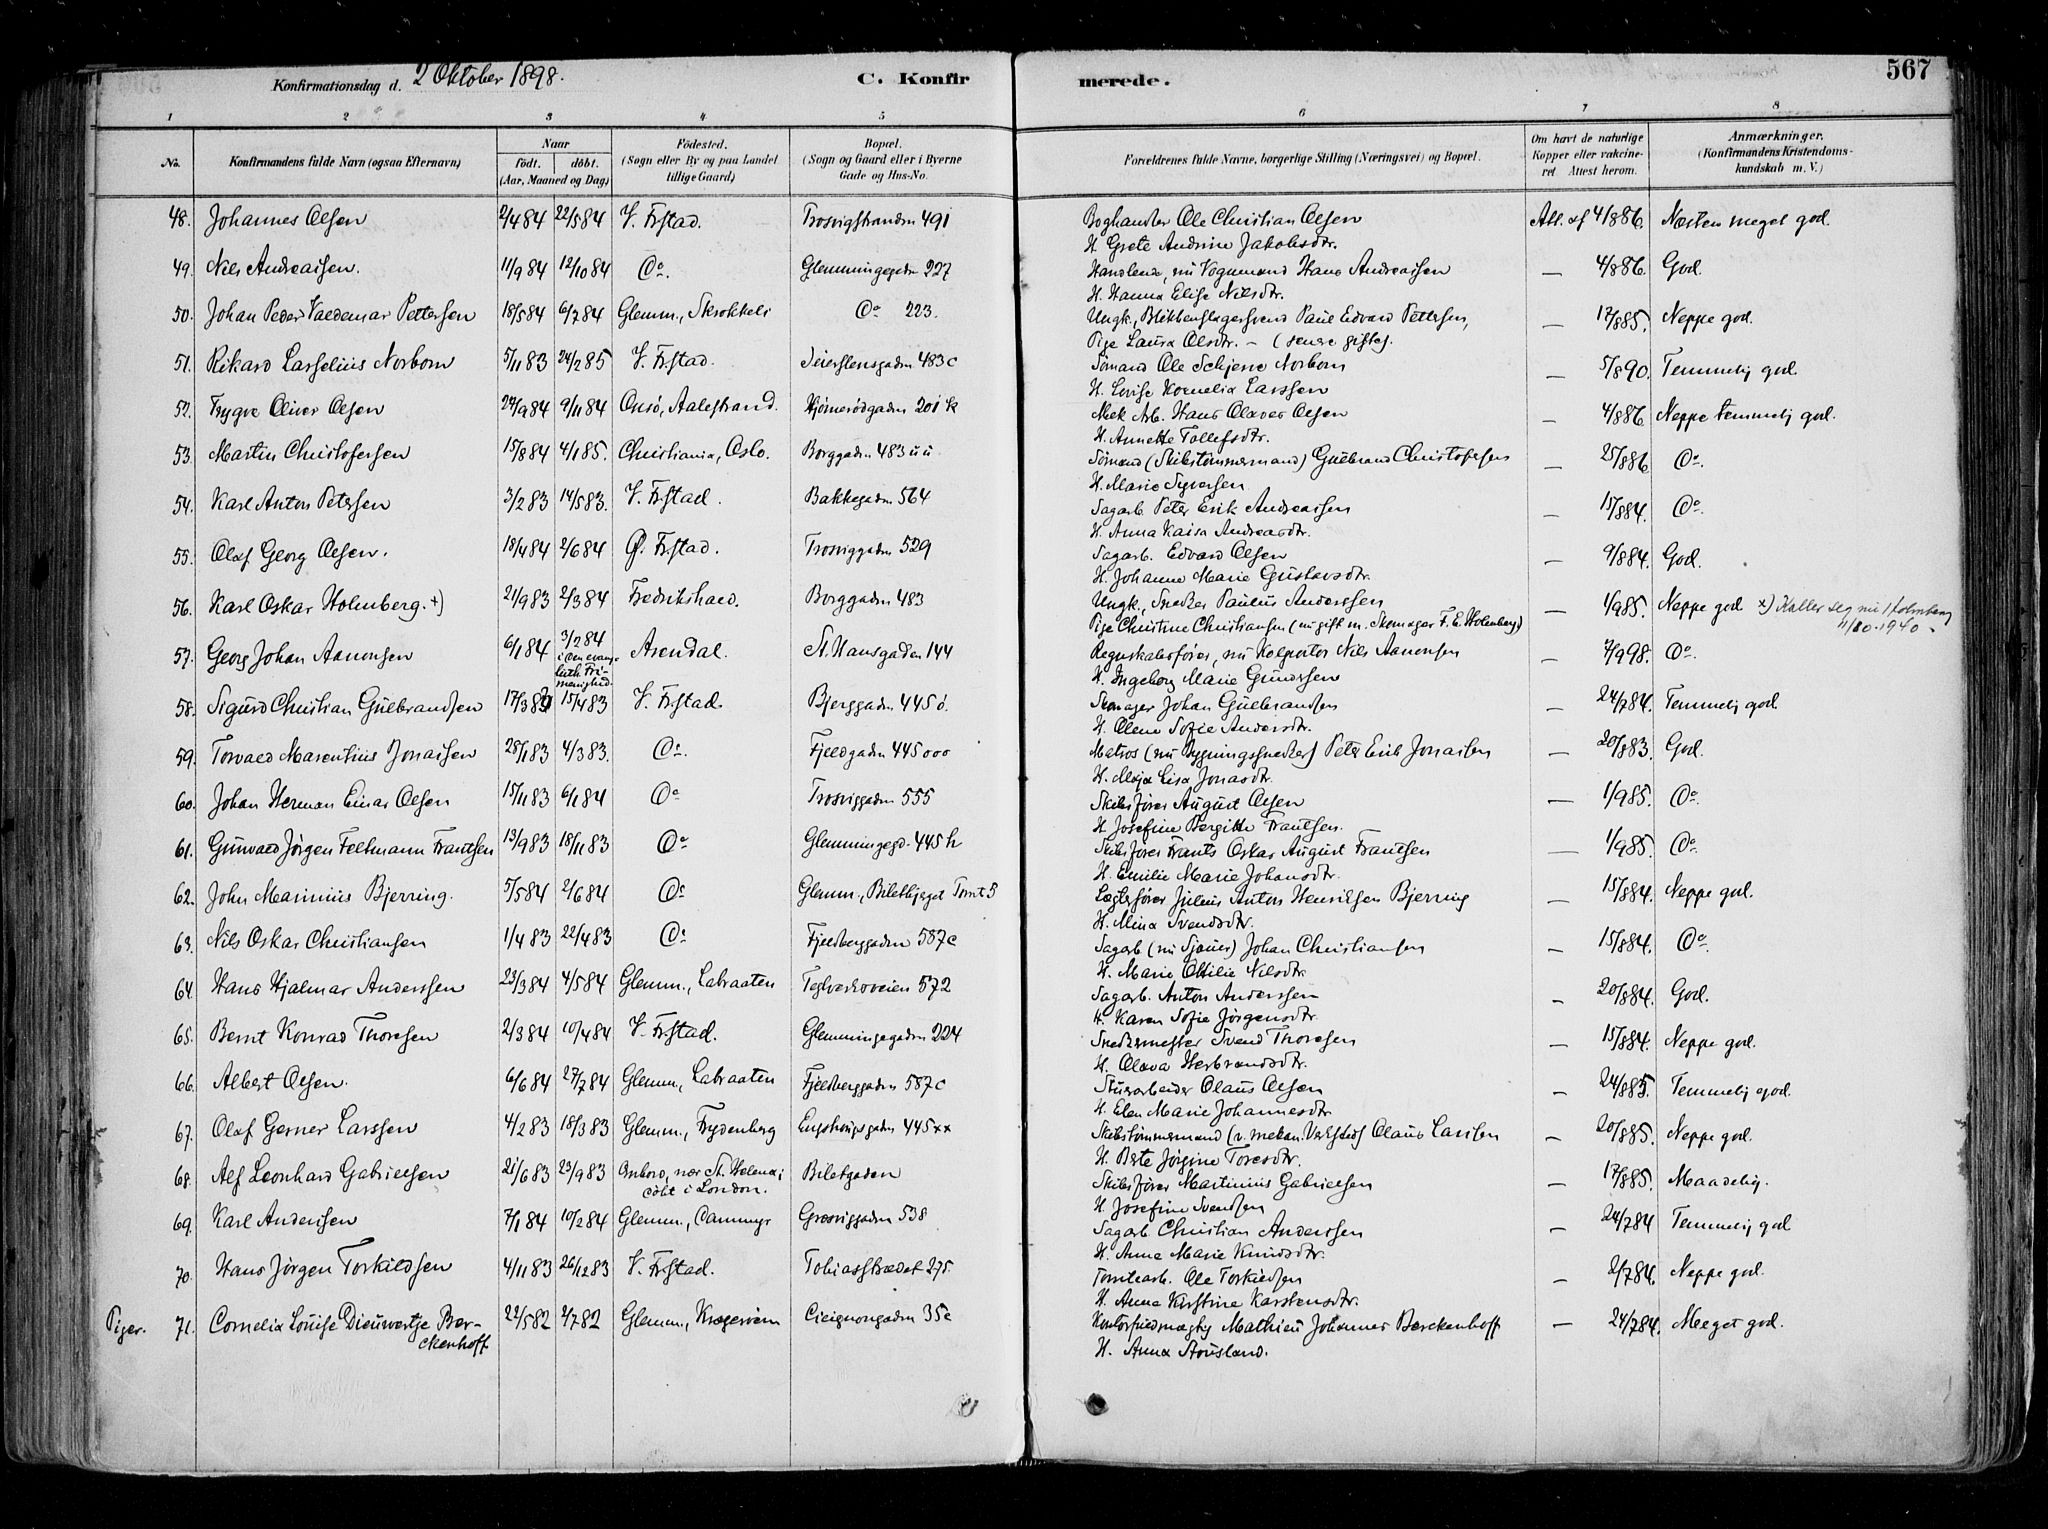 567
Konfirmationsdag d. 2 Oktober 1898.
C. Konfir
merede.
1 2 3 4 5 6 7 8
No. Konfirmandens fulde Navn (ogsaa Efternavn) Naar født. døbt. (Aar, Maaned og Dag) Fødested. (Sogn eller By og paa Landet tillige Gaard) Bopæl. (Sogn og Gaard eller i Byerne Gade og Hus-No. Forældrenes fulde Navne, borgerlige Stilling (Næringsvei) og Bopæl. Om havt de naturlige Kopper eller vakcineret Attest herom. Anmærkninger. (Konfirmandens Kristendomskundskab m. V.)
48. Johannes Olsen 2/4 84 22/5 84 V. Fr.stad. Trosvigstranden 491 Boghandler Ole Christian Olsen Att. af 4/8 86. Næsten meget god.
H. Grete Andrine Jakobsdtr.
49. Nils Andreassen. 11/9 84 12/10 84 Do. Glemmingegaden 227 Handlende, nu Vognmand Hans Andreassen — 4/8 86. God.
H. Hanna Elise Nilsdtr.
50. Johan Peder Valdemar Pettersen 18/5 84 6/7 84 Glemm., Skrokkeli Do 223. Ungk., Blikkenslagersvend Paul Edvard Pettersen, — 17/8 85. Neppe god.
Pige Laura Olsdtr. – (senere gifted).
51. Rikard Larselius Norbom 5/11 83 24/2 85 V. Fr.stad. Seierstensgaden 483 c Sømand Ole Schjerve Norbom — 5/8 90. Temmelig god.
H. Lovise Kornelia Larssen
52. Trygve Oliver Olsen 24/9 84 9/11 84 Onsø, Aalestrand. Hjørnerødgaden 201 k Mek. Arb. Hans Olaves Olsen — 4/8 86. Neppe temmelig god.
H. Annette Tollefsdtr.
53. Martin Christofersen 15/8 84 4/1 85. Christiania, Oslo. Borggaden 483 uu Sømand (Skibstømmermand) Gulbrand Christofersen — 25/8 86 Do.
H. Marie Syversen
54. Karl Anton Petersen 3/2 83 14/5 83. V. Fr.stad. Bakkegaden 564 Sagarb. Peter Erik Andreassen — 15/8 84. Do.
H. Anna Kaisa Andreasdtr.
55. Olaf Georg Olsen. 18/4 84 2/6 84 Ø. Fr.stad. Trosviggaden 529 Sagarb. Edvard Olsen — 9/8 84. God.
H. Johanne Marie Gustavsdtr.
56. Karl Oskar Holmberg. +) 21/9 83 2/3 84 Fredrikshald. Borggaden 483 Ungk., Snedker Paulus Anderssen — 1/9 85. Neppe god x) Kaller seg nu Holmberg
Pige Christine Christiansen (nu gift m. Skomager F. E. Holmberg) 11/10.1940.
57. Georg Johan Aanonsen 6/1 84 3/2 84 i den evang. luth. Frimenighed. Arendal. St. Hansgaden 144 Regnskabsfører, nu Kolportør Nils Aanonsen — 7/9 98. Do.
H. Ingeborg Marie Gundersen
58. Sigurd Christian Gulbrandsen 17/3 83 15/4 83 V. Fr.stad Bjerggaden 445 ö. Skomager Johan Gulbrandsen — 24/7 84. Temmelig god
H. Olene Sofie Andersdtr.
59. Torvald Marentius Jonassen 28/1 83 4/3 83. Do. Fjeldgaden 445 ooo Matros (nu Bygningssnedker) Peter Erik Jonassen — 20/8 83. God.
H. Maja Lisa Jonasdtr.
60. Johan Herman Einar Olsen 15/11 83 6/1 84 Do Trosviggaden 555 Skibsfører August Olsen — 1/9 85. Do.
H. Josefine Bergitte Frantsen.
61. Gunvald Jørgen Feltmann Frantsen 13/9 83 18/11 83 Do Glemmingegd. 445 h Skibsfører Frants Oskar August Frantsen — 1/9 85. Do.
H. Emilie Marie Johansdtr.
62. John Marinius Bjerring. 5/5 84 2/6 84 Do Glemm., Biletbjerget Tomt 5 Lægterfører Julius Anton Henriksen Bjerring — 15/8 84. Neppe god.
H. Mina Svendsdtr.
63. Nils Oskar Christiansen 1/4 83 22/4 83 Do Fjeldberggaden 587 c Sagarb. (nu Sjauer) Johan Christiansen — 15/8 84. Do.
H. Marie Othilie Nilsdtr.
64. Hans Hjalmar Anderssen 23/3 84 4/5 84 Glemm., Labraaten Teglverksveien 572 Sagarb. Anton Anderssen — 20/8 84. God.
H. Karen Sofie Jørgensdtr.
65. Bernt Konrad Thoresen 2/3 84 10/4 84 V. Fr.stad. Glemmingegaden 224 Snedkermester Svend Thoresen — 15/8 84. Neppe god.
H. Olava Herbrandsdtr.
66. Albert Olsen. 6/6 84 27/7 84 Glemm., Labraaten Fjeldberggaden 587 c Stuerarbeider Olaus Olsen — 24/8 85. Temmelig god.
H. Elen Marie Johannesdtr
67. Olaf Gerner Larssen 4/2 83 18/3 83 Glemm., Frydenberg Enghougsgaden 445 xx Skibstømmermand (v. mekan. Verksted) Olaus Larssen — 20/8 85. Neppe god.
H. Berte Jørgine Toresdtr.
68. Alf Leonhard Gabrielsen 21/6 83 23/9 83 Ombord, nær St. Helena; Biletgaden Skibsfører Martinius Gabrielsen — 17/8 85. Maadelig.
døbt i London. H. Josefine Svendsen
69. Karl Anderssen 7/1 84 10/2 84 Glemm., Dammyr Græsviggaden 538 Sagarb. Christian Anderssen — 24/7 84 Temmelig god
H. Anne Marie Knudsdtr.
70. Hans Jørgen Torkildsen 4/11 83 26/12 83 V. Fr.stad. Tobiasstrædet 275 Tomtearb. Ole Torkildsen — 2/7 84. Neppe god.
H. Anna Kirstine Karstensdtr.
Piger. 71. Cornelia Louise Dieuwertje Ber- 22/5 82 2/7 82 Glemm., Kragerøen Cicignongaden 35 c Kontorfuldmægtig Mathieu Johannes Berckenhoff — 24/7 84. Meget god.
ckenhoff H. Anna Aousland.